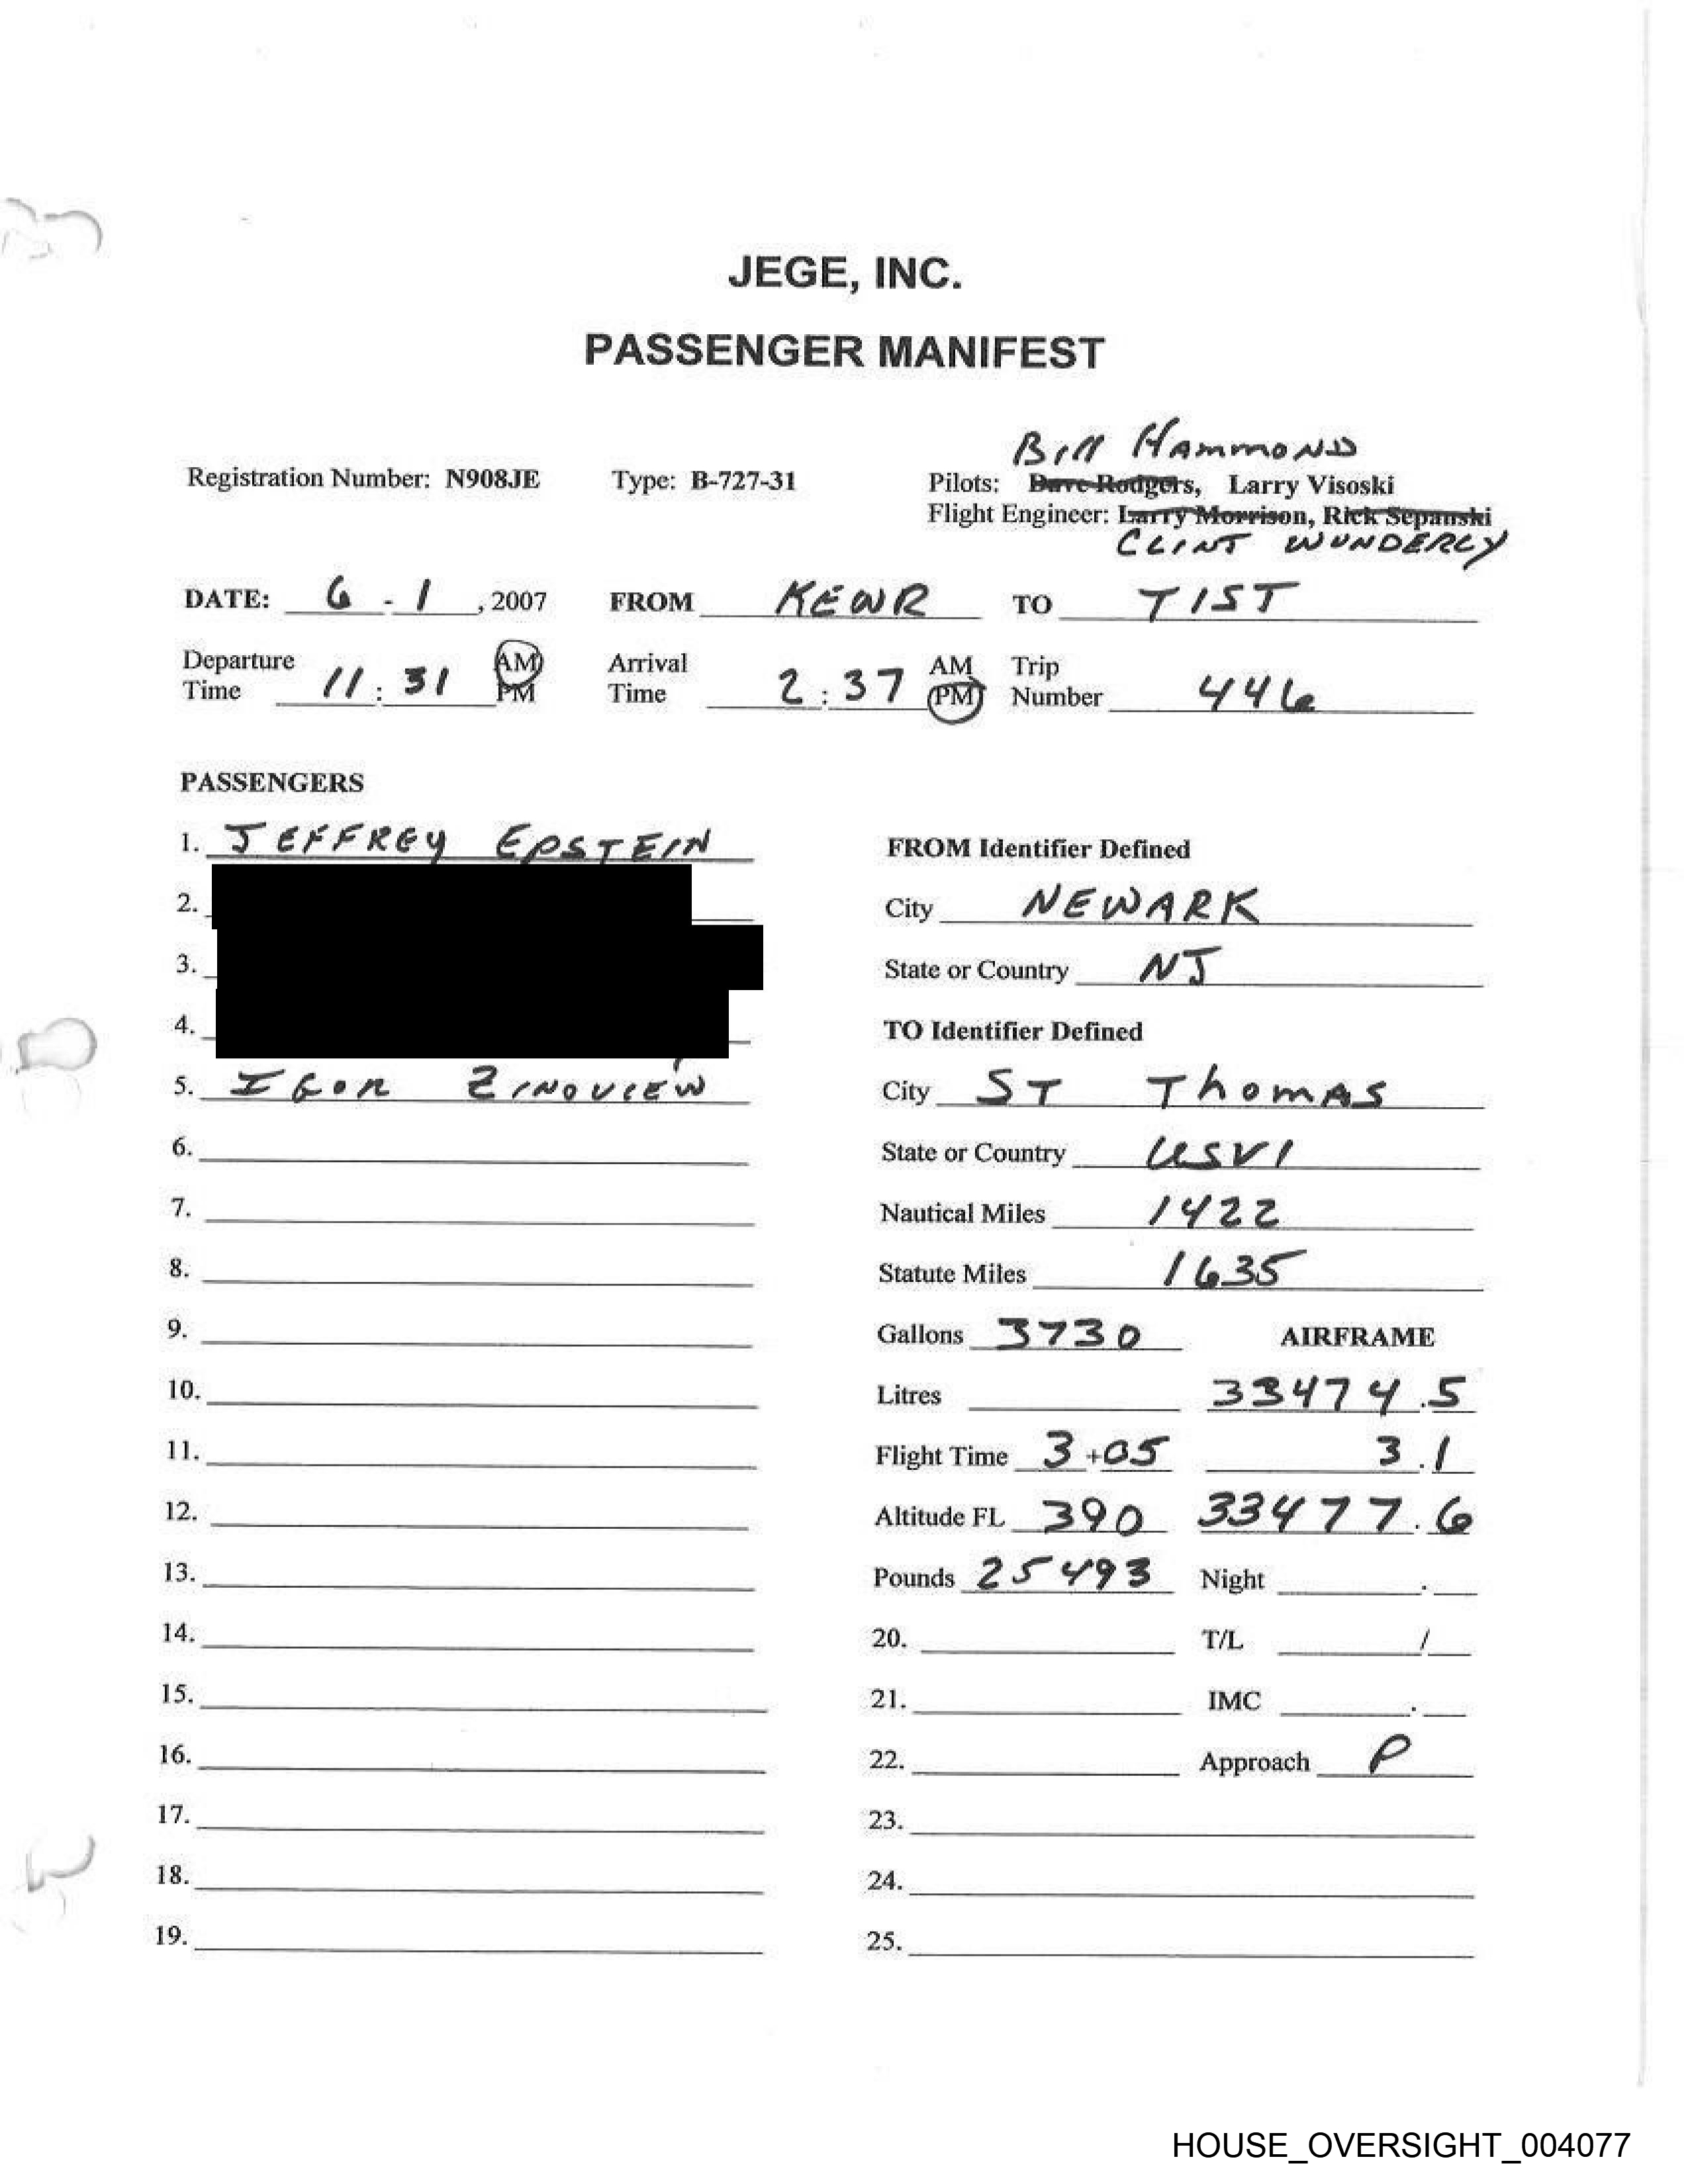 JEGE, INC.
PASSENGER MANIFEST
Bill HAMMOND
Registration Number: N908JE Type: B-727-31 Pilots: Dave Rodgers, Larry Visoski
Flight Engineer: Larry Morrison, Rick Sepanski
CLINT WUNDERLY
DATE: 6 - 1 , 2007 FROM KEWR TO TIST
Departure Time 11 : 31 AM PM Arrival Time 2 : 37 AM PM Trip Number 446
PASSENGERS
1. JEFFREY EPSTEIN
2.
3.
4.
5. IGOR ZINOVIEW
6.
7.
8.
9.
10.
11.
12.
13.
14.
15.
16.
17.
18.
19.
FROM Identifier Defined
City NEWARK
State or Country NJ
TO Identifier Defined
City ST Thomas
State or Country USVI
Nautical Miles 1422
Statute Miles 1635
Gallons 3730 AIRFRAME
Litres 33474.5
Flight Time 3+05 3.1
Altitude FL 390 33477.6
Pounds 25493 Night .
20. T/L /
21. IMC .
22. Approach P
23.
24.
25.
HOUSE_OVERSIGHT_004077